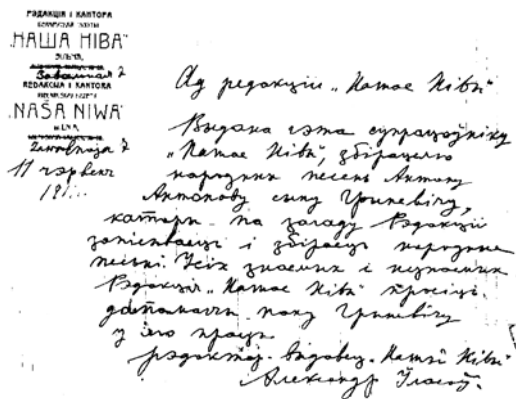 РЭДАКЦІЯ І КАНТОРА
БЕЛАРУСКАЙ ГАЗЕТЫ
„НАША НІВА"
ВІЛЬНЯ,
Завальная 7
REDAKCIJA I KANTORA
„NAŠA NIWA"
WILNIA
Zawalnaja 7
11 чэрвеня
191
Ад редакціи „Нашае Нівы"
Выдана гэта супрацоўніку
„Нашае Нівы", збірацелю
народных песень Антону
Антонову сыну Грыневічу,
каторы па загаду Рэдакціи
запісывает і збірает народные
песьні. Усіх знаемых і незнаемых
Рэдакція „Нашае Нівы" просіць
дапамагчы пану Грыневічу
у его працы
Рэдактор-выдавец „Нашай Нівы"
Александр Уласоў.